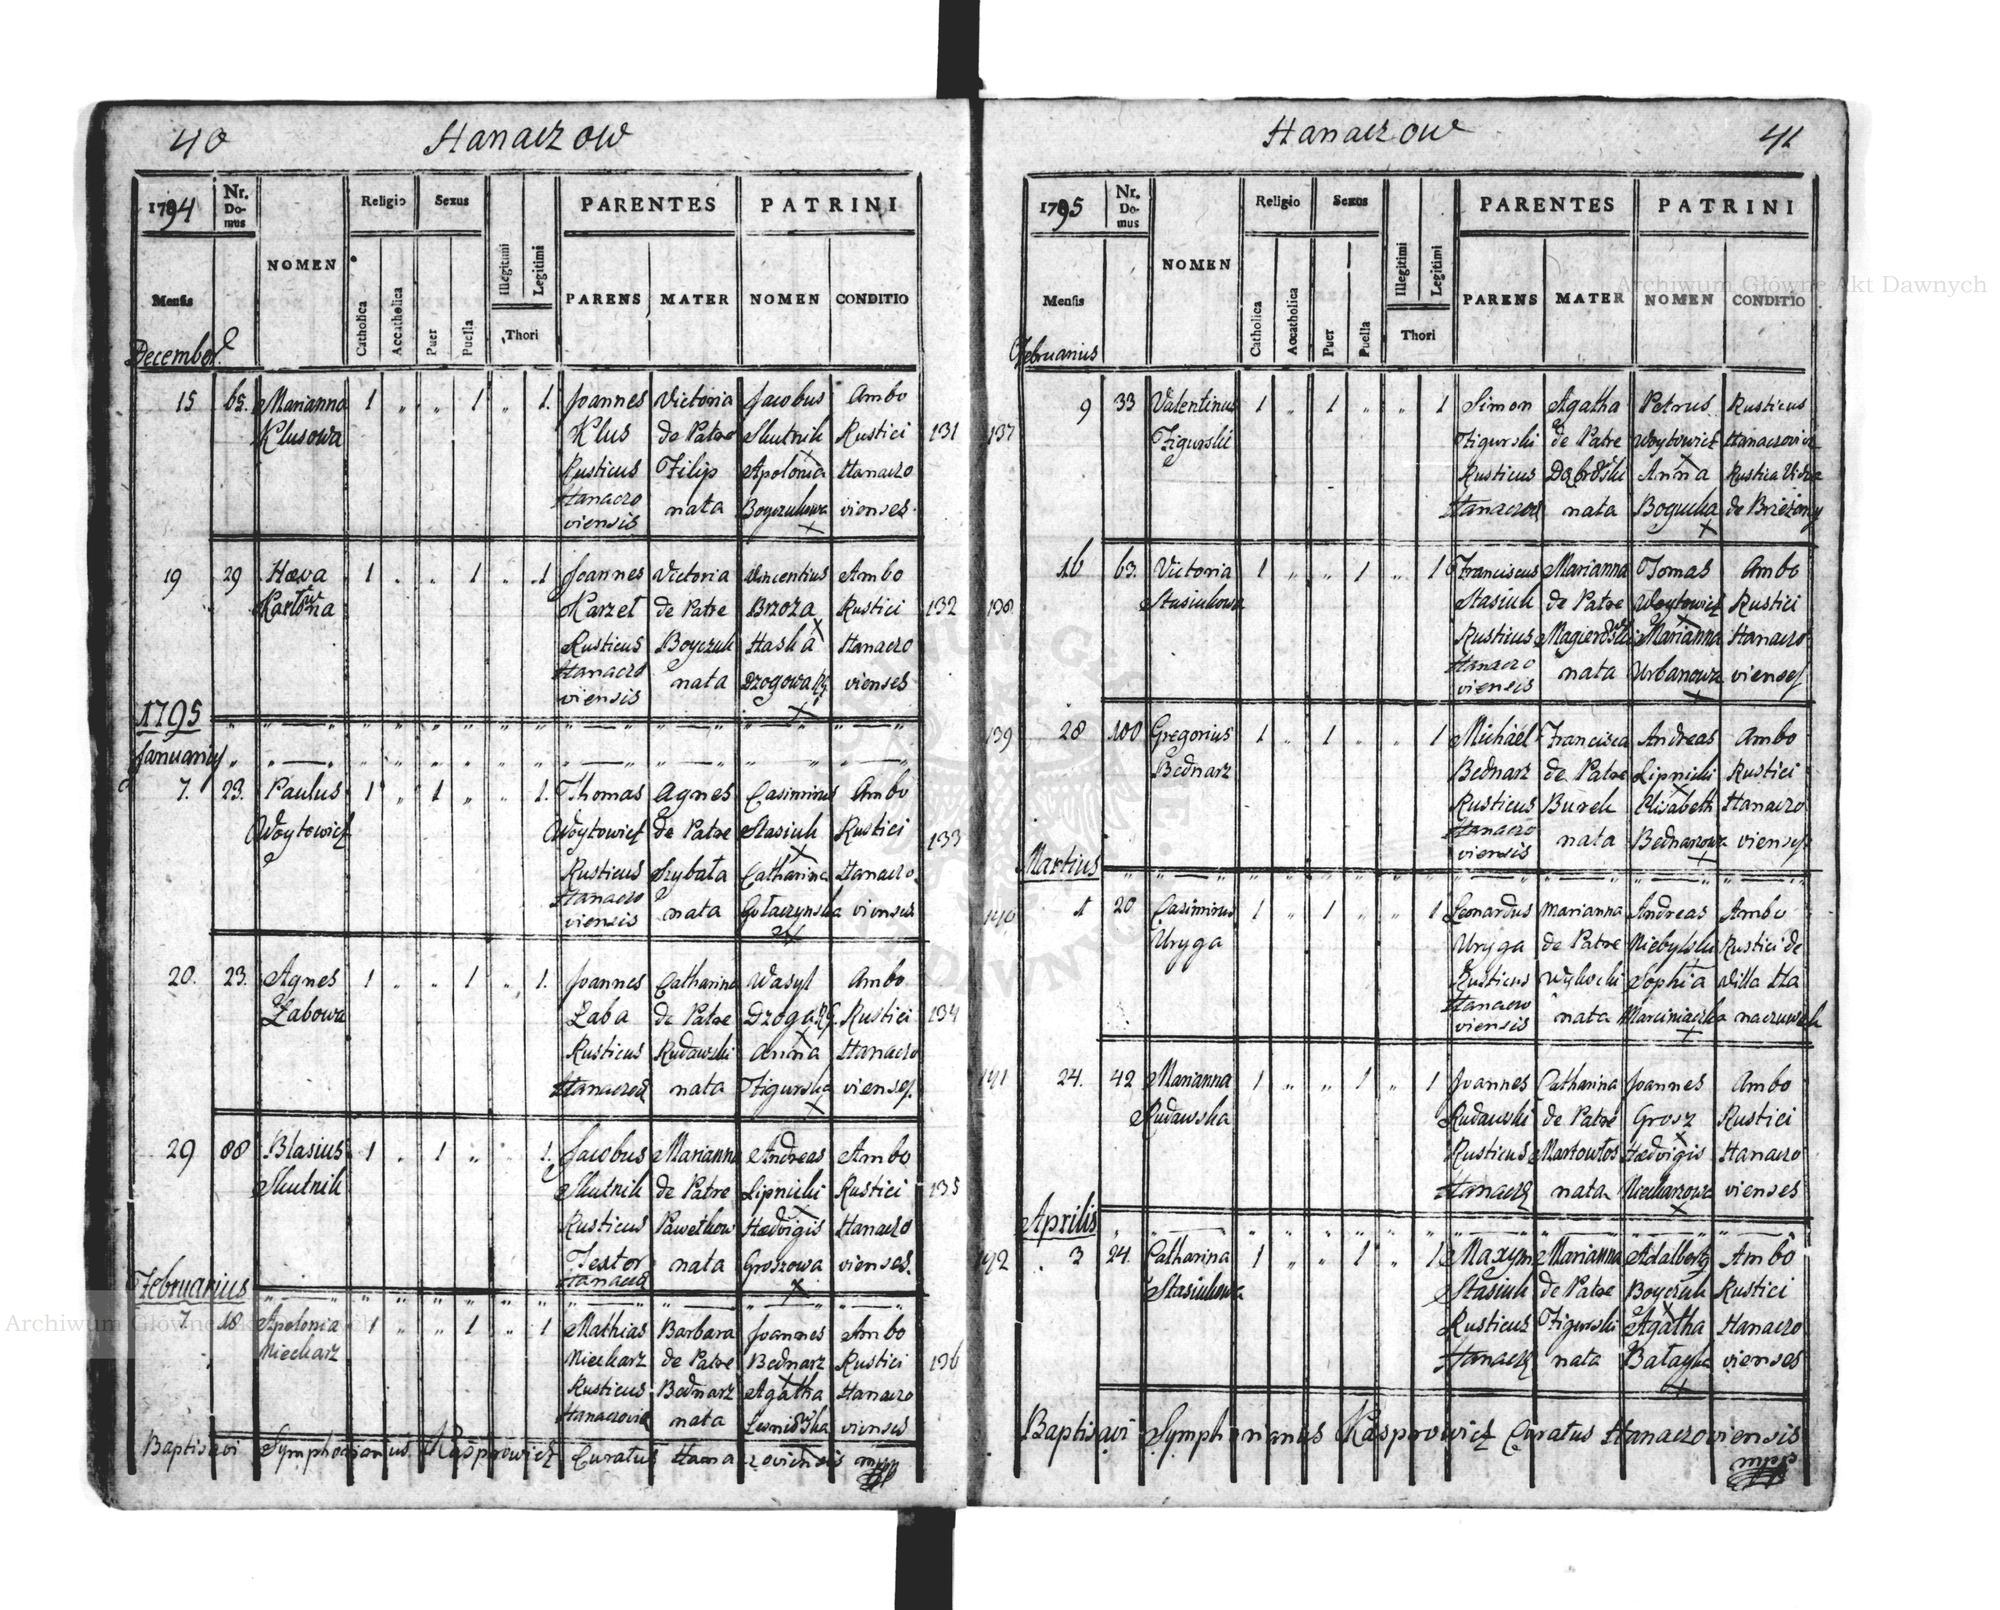 40 Hanaczow
1794 Nr. Domus NOMEN Religio Sexus PARENTES PATRINI
Mensis Catholica Accatholica Puer Puella Illegitimi Legitimi Thori PARENS MATER NOMEN CONDITIO
December
15 65. Marianna 1 „ „ 1 „ 1. Joannes Victoria Jacobus Ambo
Klusowa Klus de Patre Skutnik Rustici 131
Rusticus Filip Apolonia Hanaczo
Hanaczo nata Boyczukowa vienses.
viensis
19 29 Hæva 1 „ „ 1 „ 1 Joannes Victoria Vincentius Ambo
Karzet de Patre Brzoza Rustici 132
Rusticus Boyczuk Haska Hanaczo
Hanaczo nata Dzogowa RG. vienses
viensis
1795
January
7. 23. Paulus 1 „ 1 „ „ 1. Thomas Agnes Casimirus Ambo
Woytowicz Woytowicz de Patre Stasiuk Rustici 133
Rusticus Szybata Catharina Hanaczo
Hanaczo nata Gołaczynska vienses
viensis
20. 23. Agnes 1 „ „ 1 „ 1. Joannes Catharina Wasyl Ambo
Łabowa Łaba de Patre Dzoga RG. Rustici 134
Rusticus Rudawski Anna Hanaczo
nata Figurska vienses.
29 88 Blasius 1 „ 1 „ „ 1. Jacobus Marianna Andreas Ambo
Skutnik Skutnik de Patre Lipnicki Rustici 135
Rusticus Pawełkow Hædvigis Hanaczo
Textor nata Groszowa vienses.
Februarius
7. 18 Apolonia 1 „ „ 1 „ 1 Mathias Barbara Joannes Ambo
Niecharz Niecharz de Patre Bednarz Rustici 136
Rusticus Bednarz Agatha Hanaczo
nata vienses
Baptisavi Symphorianus Kasprowicz Curatus Hanaczoviensis mpp
Hanaczow 41
1795 Nr. Domus NOMEN Religio Sexus PARENTES PATRINI
Mensis Catholica Accatholica Puer Puella Illegitimi Legitimi Thori PARENS MATER NOMEN CONDITIO
Februarius
9 33 Valentinus 1 „ 1 „ „ 1 Simon Agatha Petrus Rusticus
137 Figurski Figurski de Patre Woytowicz
Rusticus Anna Rustica
nata Bogucka de Brzeżany
16 63. Victoria 1 „ „ 1 „ 1 Franciscus Marianna Tomas Ambo
138 Stasiukowa Stasiuk de Patre Woytowicz Rustici
Rusticus Magierowski Marianna Hanaczo
Hanaczo nata Urbanowa vienses
viensis
139 28 100 Gregorius 1 „ 1 „ „ 1 Michael Francisca Andreas Ambo
Bednarz Bednarz de Patre Lipnicki Rustici
Rusticus Burek Elisabeth Hanaczo
Hanaczo nata Bednarzowa vienses
viensis
Martius
140 1 20 Casimirus 1 „ 1 „ „ 1 Leonardus Marianna Andreas Ambo
Uryga Uryga de Patre Niebylski Rustici de
Rusticus Sophia Villa Ha
nata Marciniaczka
viensis
141 24. 42 Marianna 1 „ „ 1 „ 1 Joannes Catharina Joannes Ambo
Rudawska Rudawski de Patre Grosz Rustici
Rusticus Martowłos Hædvigis Hanaczo
nata Niecharzowa vienses
Aprilis
142 3 24. Catharina 1 „ „ 1 „ 1 Maxym Marianna Adalbertg Ambo
Stasiukowa Stasiuk de Patre Boyczuk Rustici
Rusticus Figurski Agatha Hanaczo
nata vienses
Baptisavi Symphorianus Kasprowicz Curatus Hanaczoviensis
mpp
Archiwum Główne Akt Dawnych